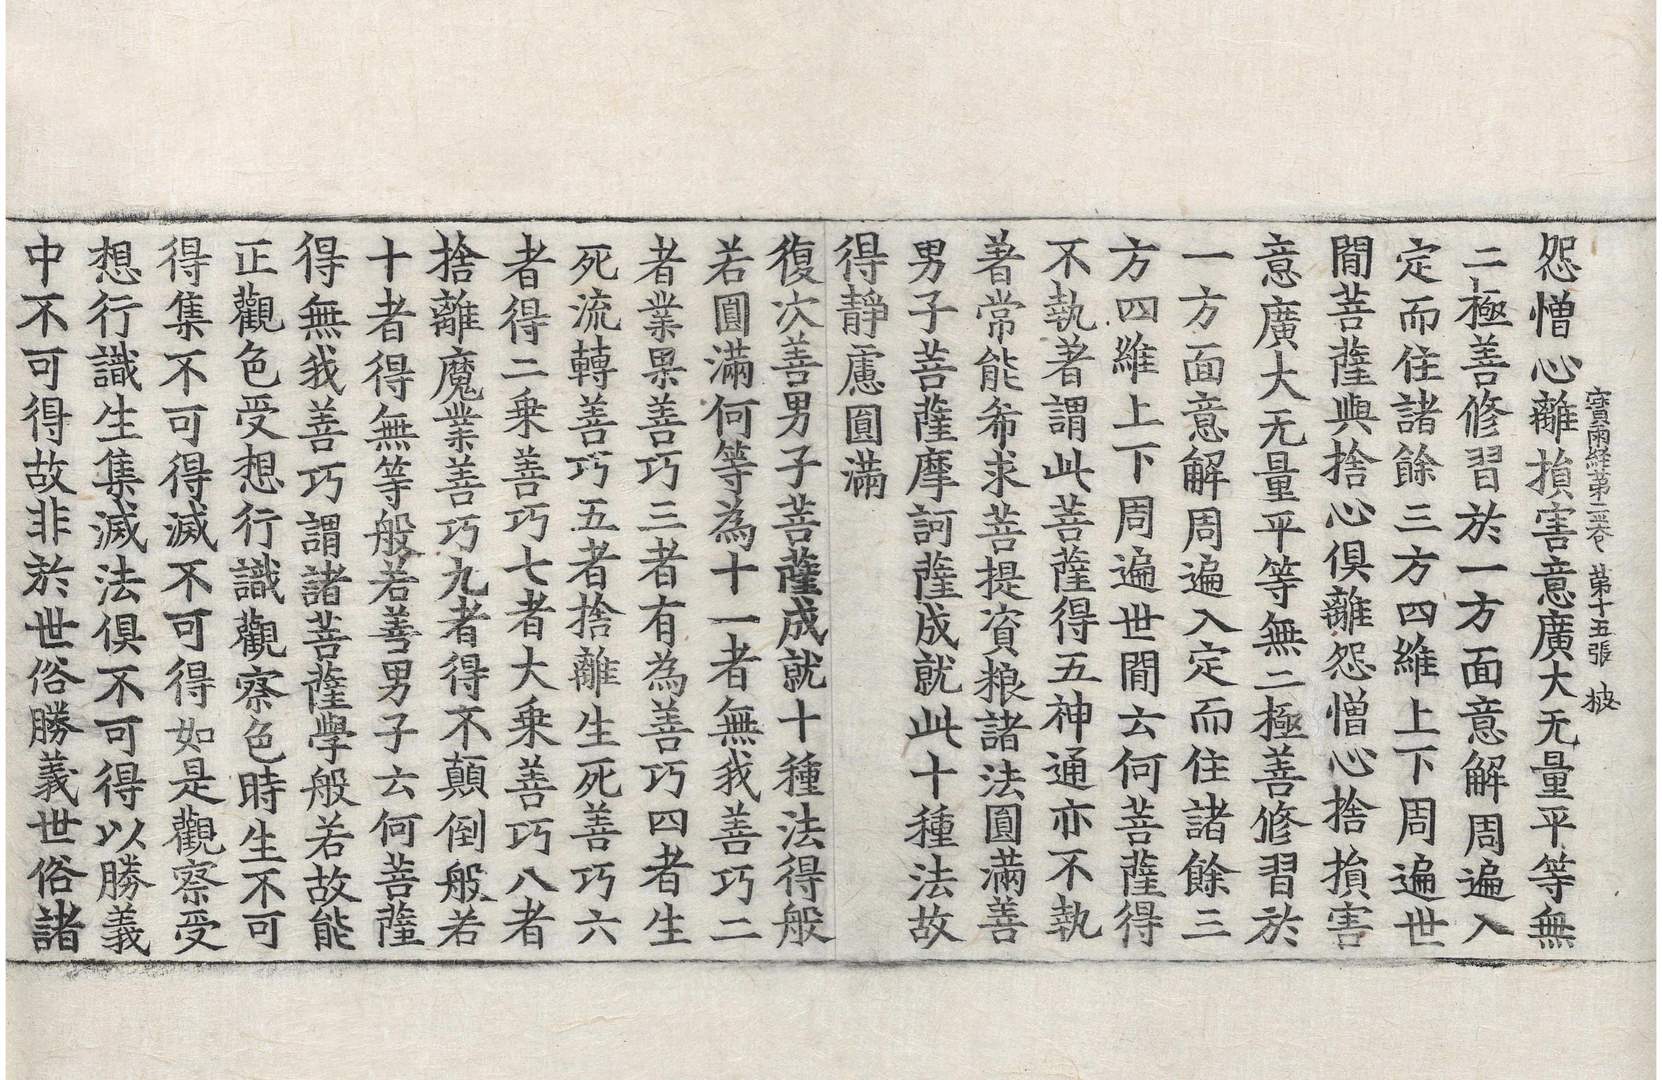 寶雨經第二卷 第十五張 披
怨憎心離損害意廣大无量平等無
二極善修習於一方面意解周遍入
定而住諸餘三方四維上下周遍世
間菩薩與捨心俱離怨憎心捨損害
意廣大无量平等無二極善修習於
一方面意解周遍入定而住諸餘三
方四維上下周遍世間云何菩薩得
不執著謂此菩薩得五神通亦不執
著常能希求菩提資粮諸法圓滿善
男子菩薩摩訶薩成就此十種法故
得靜慮圓滿
復次善男子菩薩成就十種法得般
若圓滿何等為十一者無我善巧二
者業果善巧三者有為善巧四者生
死流轉善巧五者捨離生死善巧六
者得二乘善巧七者大乘善巧八者
捨離魔業善巧九者得不顛倒般若
十者得無等般若善男子云何菩薩
得無我善巧謂諸菩薩學般若故能
正觀色受想行識觀察色時生不可
得集不可得滅不可得如是觀察受
想行識生集滅法俱不可得以勝義
中不可得故非於世俗勝義世俗諸